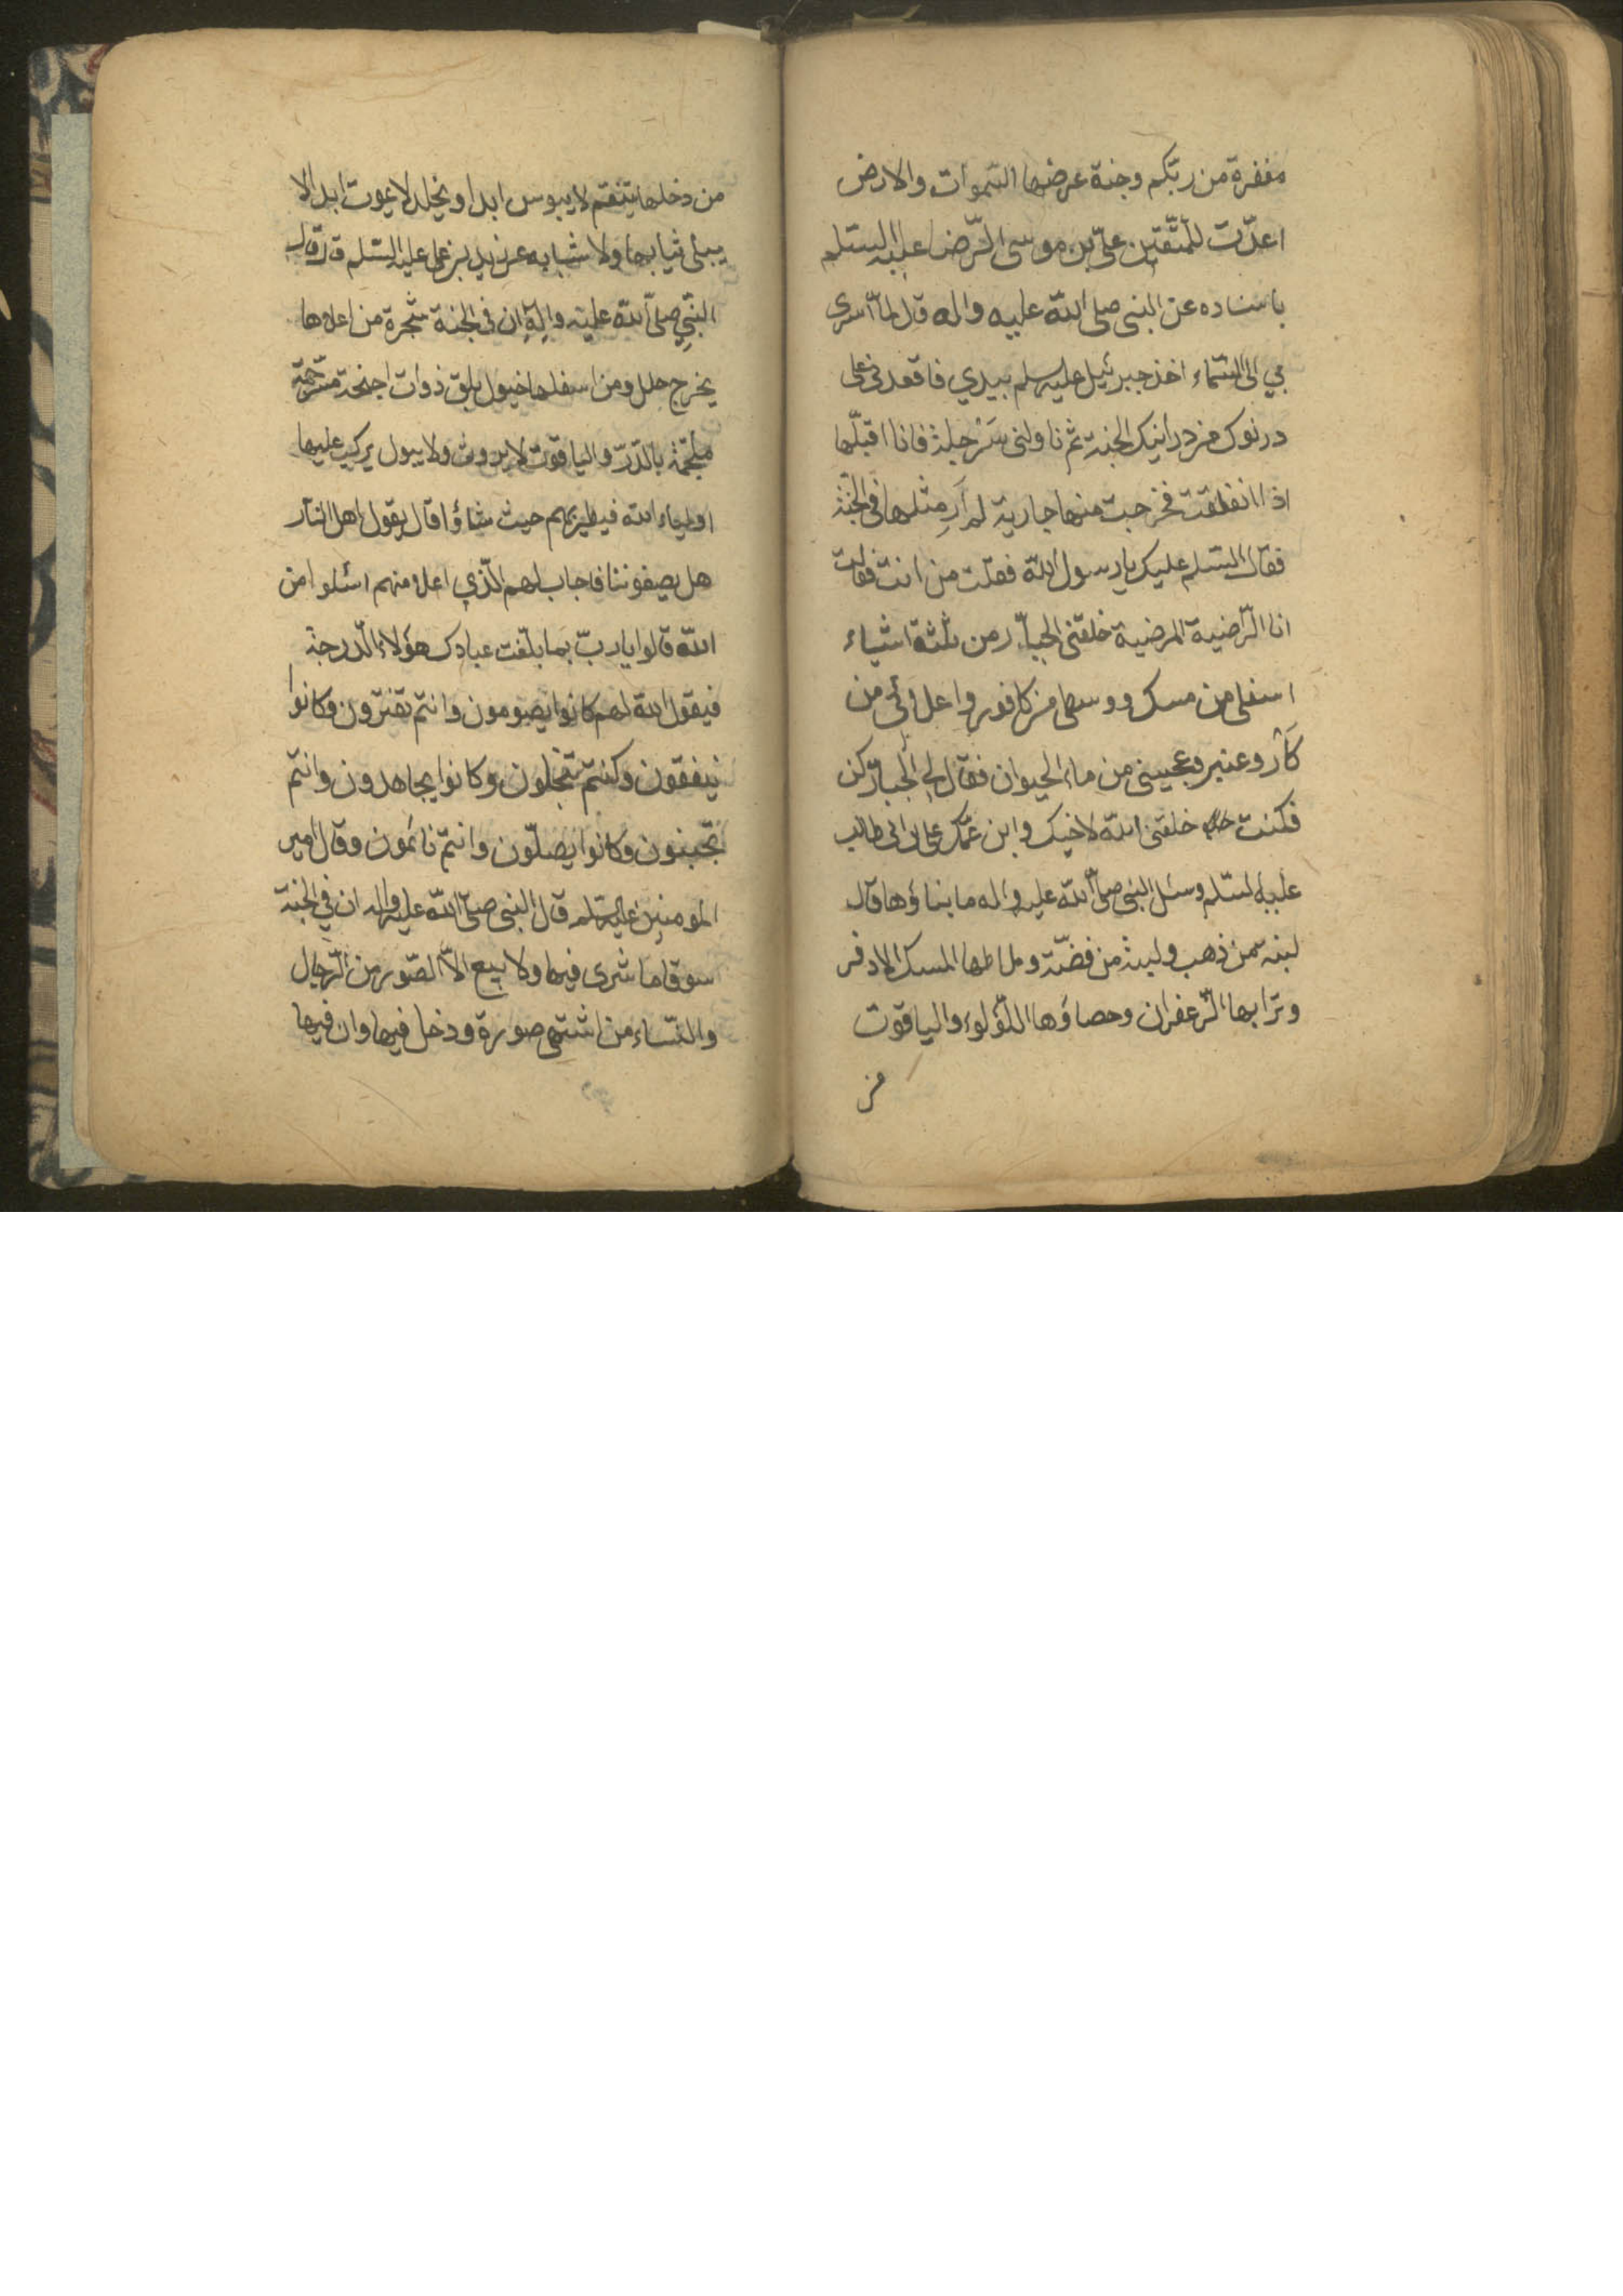 مغفرة من ربّكم وجنة عرضها السّموات والارض
اعدّت للمتّقين علیّ بن موسی الرّضا علیه السّلم
باسناده عن النبی صلی اللّه علیه واله قال لمّا اسری
بي الی السّماء اخذ جبرئیل علیه سلم بیدي فاقعدنی علی
درنوک من درانیک الجنة ثم ناولنی سَفَرجلة فانا اقبّلها
اذا انفلقت فخرجت منها جاریة لم اَرَ مثلها فی الجنّة
فقال السّلم علیک یا رسول اللّه فقلت من انت فقالت
انا الرّاضیة المرضیة خلقنی الجبّار من ثلثة اشیاء
اسفلی من مسک ووسطی من کافور واعلائی من
عنبر وعجینی من ماء الحیوان فقال لي الجبار کن
فکنت خلقنی اللّه لاخیک وابن عمّک علی بن ابی طالب
علیه لسّلم وسئل النبی صلّی اللّه علیه واله ما بناؤها قال
لبنة من ذهب ولبنة من فضّة وملاطها المسک الادفر
وترابها الزّعفران وحصاؤها اللّؤلوء والیاقوت
من
من دخلها یتنعّم لا یبوس ابدا ویخلد لا یموت ابدا لا
یبلی ثیابها ولا شبابه عن زید بن علی علیه السّلم قال قال
النّبیِ صلّی اللّه علیه والِهِ ان فی الجنة شجرة من اعلاها
یخرج حلل ومن اسفلها خیول بلق ذوات اجنحة مسّرجة
ملجّمة بالدّرّ والیاقوت لا یروث ولا یبول یرکب علیها
اولیاء اللّه فیطیر بهم حیث شاؤا قال یقول اهل النّار
هل یصفوننا فاجاب لهم الّذي اعلا منهم اسئلوا من
اللّه قالوا یا ربّ بما بلّغت عبادک هؤلاء الّدرجة
فیقول اللّه لهم کانوا یصومون وانتم تفترون وکانوا
ینفقون وکنتم تبخلون وکانوا یجاهدون وانتم
تجبنون وکانوا یصلّون وانتم نائمون وقال امیر
المومنین علیه لسّلم قال النبی صلّی اللّه علیه واله ان في الجنة
سوقا ما شری فیها ولا بیع الاّ الصّور من الرّجال
والنّساء من اشتهی صورة ودخل فیها وان فیها